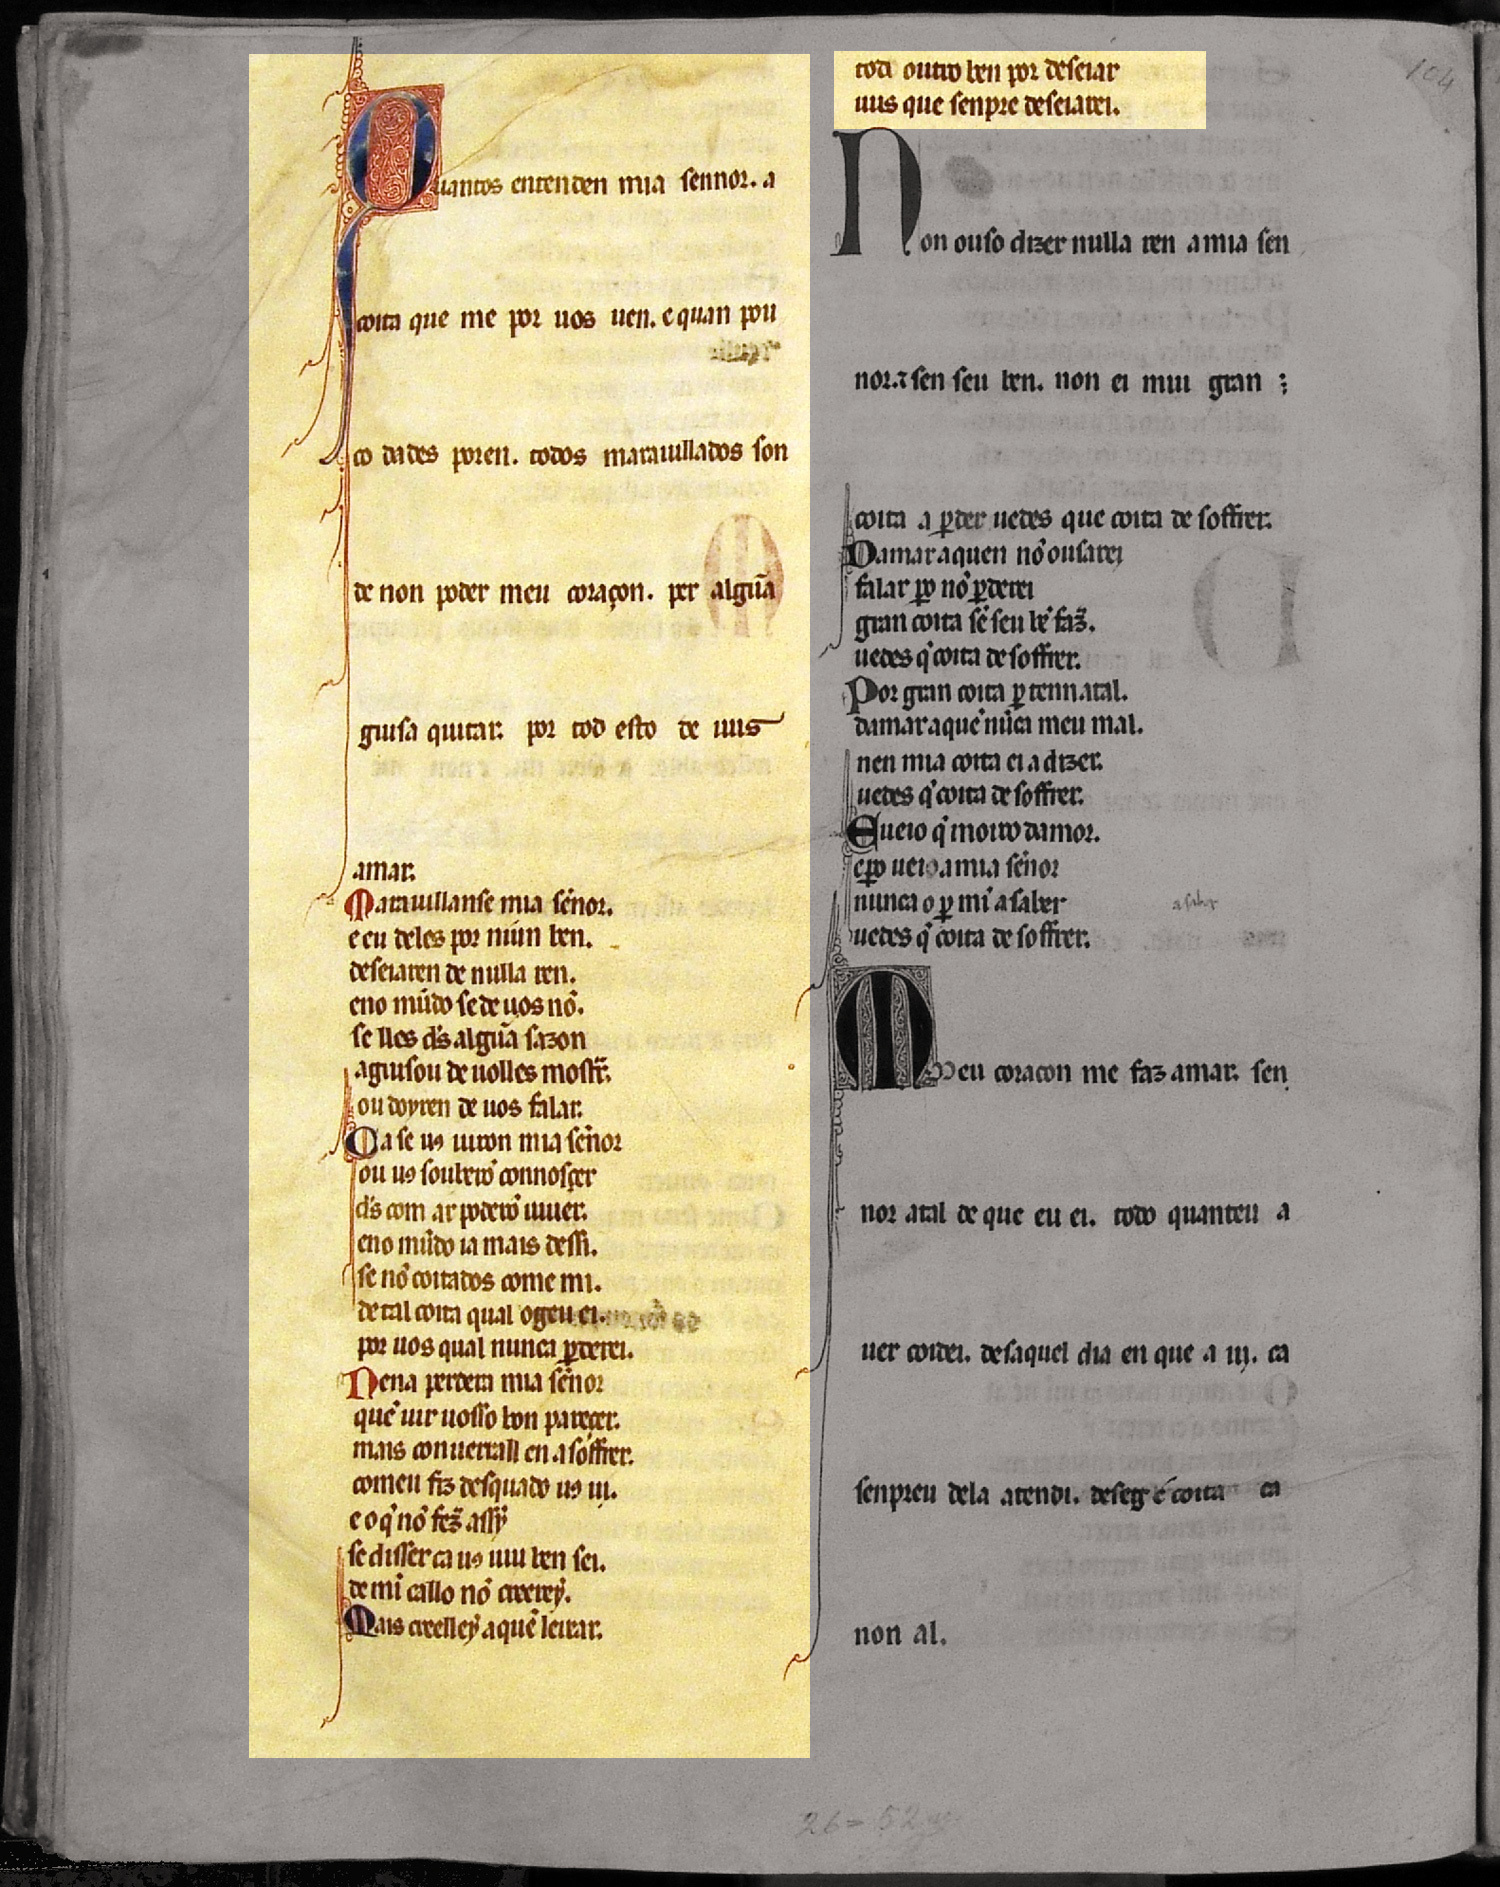 Quantos entenden mia sennor. a
coita que me por uos uen. e quan pou
co dades poren. todos marauillados son
de non poder meu coraçon. per algũa
guisa quitar. por tod esto de uus
amar.
Marauillanse mia sẽnor.
e eu deles por niun ben.
deseiaren de nulla ren.
eno mũdo se de uos nõ.
se lles ds̃ algũa sazon
aguisou de uolles mostr̃.
ou doyren de uos falar.
Ca se uꝯ uiron mia señor
ou uꝯ souberõ connosçer
ds̃ com ar poderõ uiuer.
eno mũdo ia mais dessi.
se nõ coitados come mi.
de tal coita qual ogeu ei.
por uos qual nunca ꝑderei.
Nena perdera mia señor
quẽ uir uosso bon pareçer.
mais conuerrall en a soffrer.
comeu fiz desquãdo uꝯ ui.
e o q̃ nõ fez̃ assy
se disser ca uꝯ uiu ben sei.
de mi callo nõ creerey.
Mais creelley a quẽ leixar.
tod outro ben por deseiar
uus que senpre deseiarei.
Non ouso dizer nulla ren a mia sen
nor. ⁊ sen seu ben. non ei mui gran ;
coita a ꝑder uedes que coita de soffrer.
Damar a quen nõ ousarei
falar ꝑo nõ ꝑderei
gran coita sẽ seu bẽ faz̃.
uedes q̃ coita de soffrer.
Por gran coita ꝑ tenn atal.
damar a quẽ nũca meu mal.
nen mia coita ei a dizer.
uedes q̃ coita de soffrer.
E ueio q̃ moiro damor.
e ꝑo ueio a mia sẽnor
nunca o ꝑ mi a saber
a saber
uedes q̃ coita de soffrer.
Meu coracon me faz amar. sen
nor atal de que eu ei. todo quanteu a
uer coidei. desaquel dia en que a ui. ca
senpreu dela atendi. deseg̃ e coita ca
non al.
104